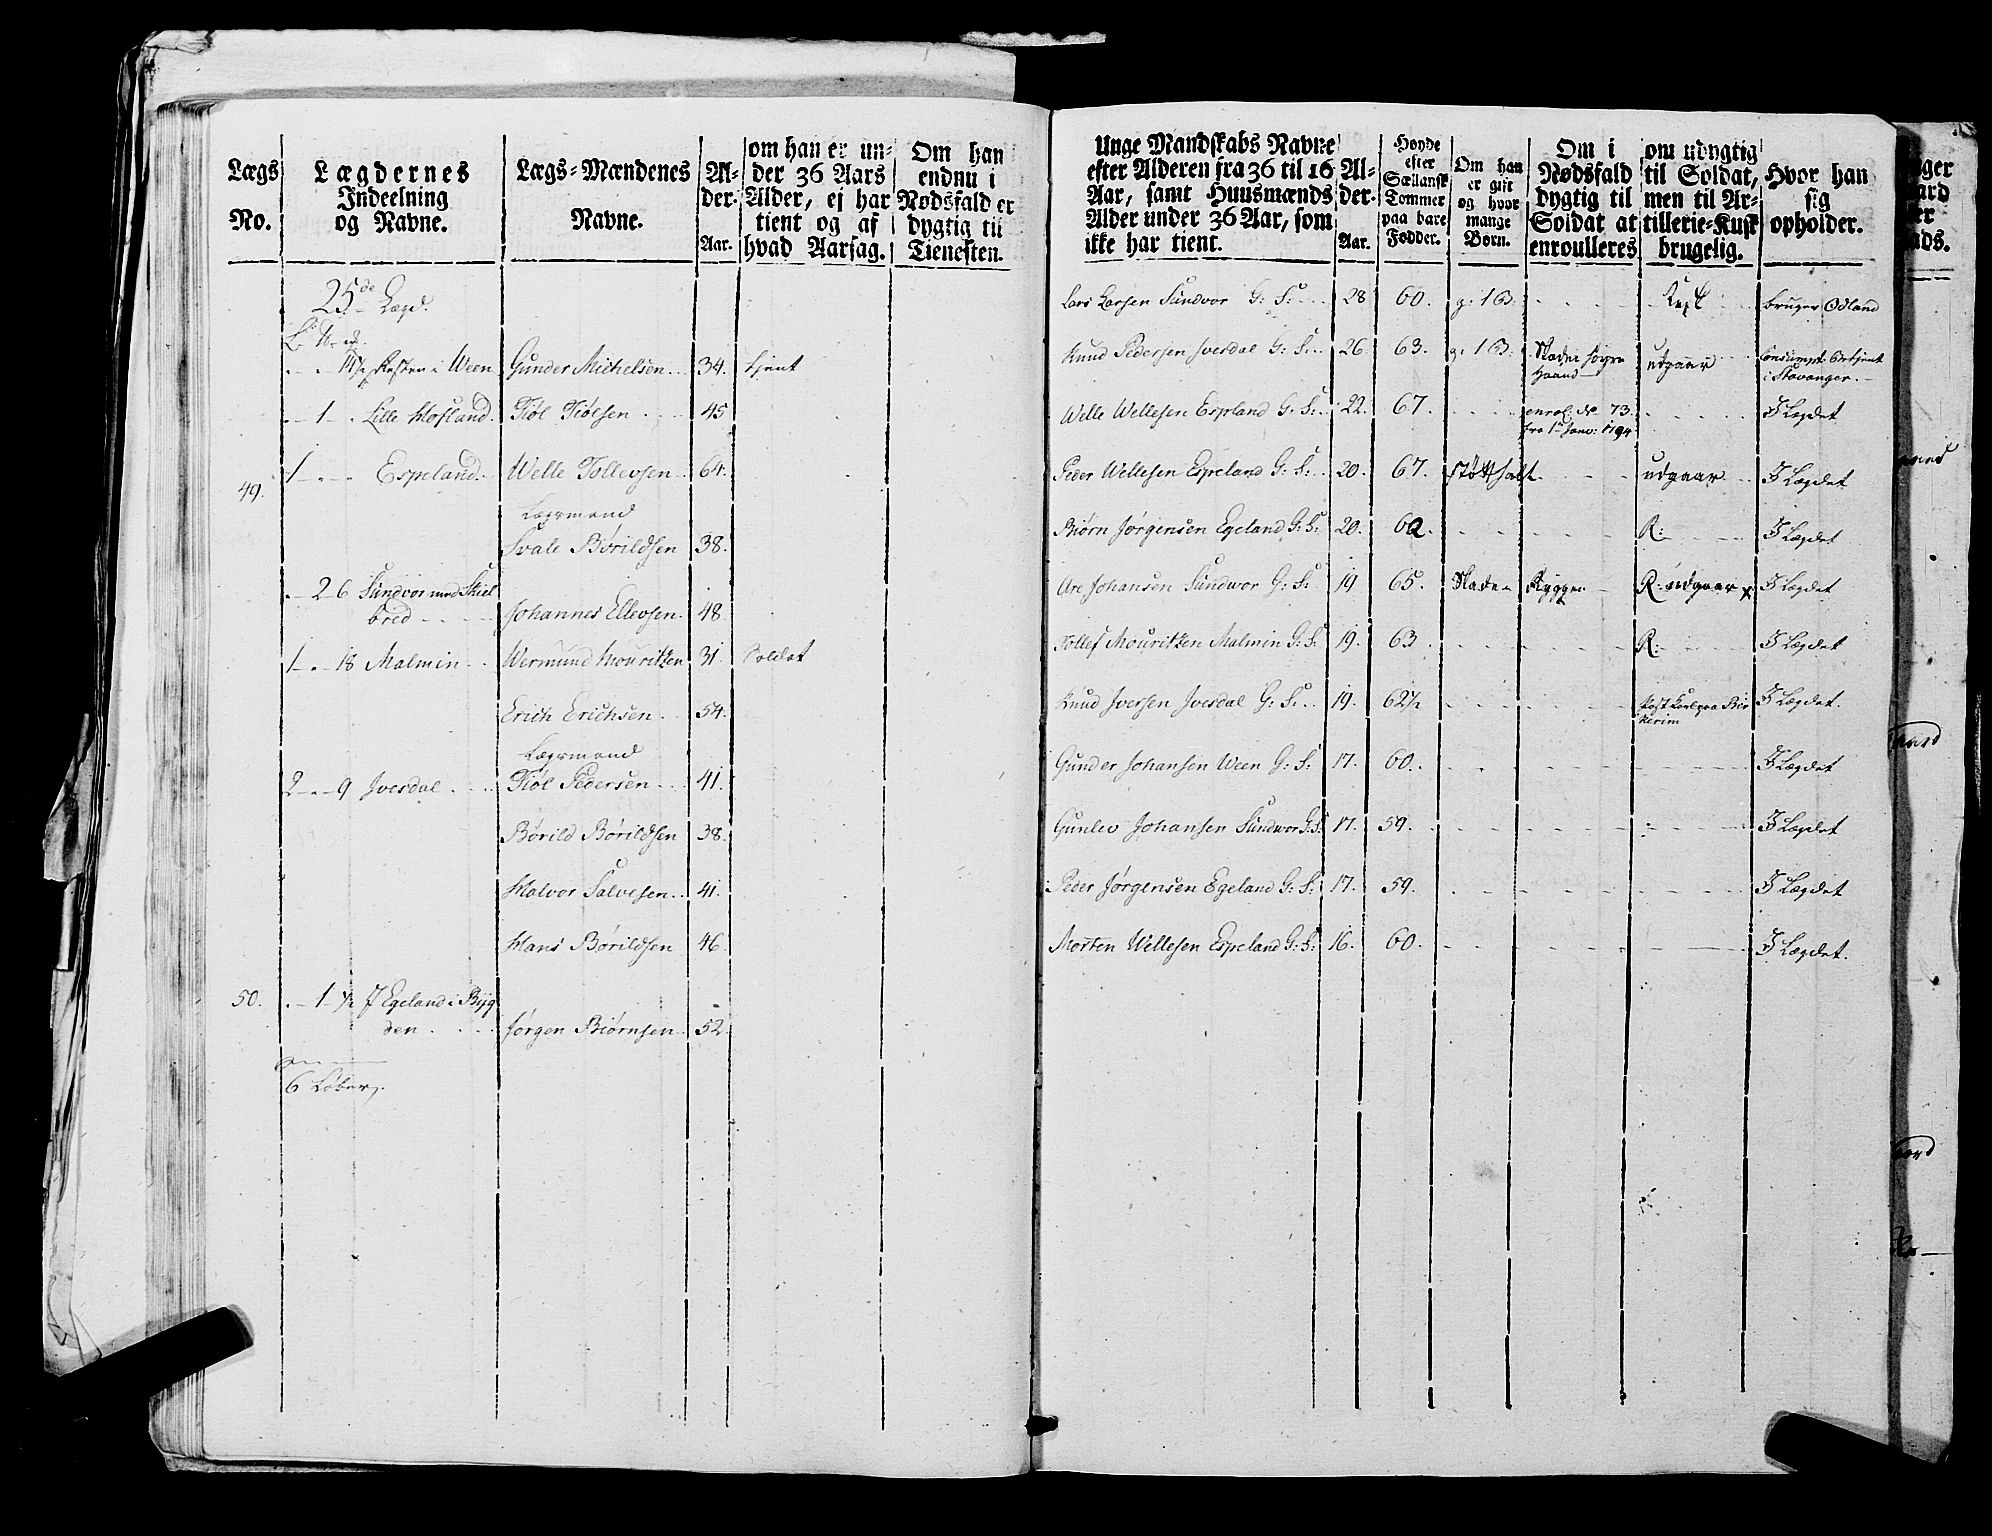 Lægs No.
Lægdernes Indeelning og Navne.
Lægs-Mændenes Navne.
Al-der. Aar.
om han er un-der 36 Aars Alder, ej har tient og af hvad Aarsag.
Om han endnu i Nødsfald er dygtig til Tienesten.
25de Lægd.
Resten i Ween Gunder Michelsen 34. tjent
1 Lille Hofland Tiøl Tiølsen 45
49. 1 Espeland Welle Tollevsen 64.
Lægsmand
Svale Børildsen 38.
2 6 Sundvor med Skiel
bred Johannes Ellevsen 48
1 18 Malmin Wermund Mouritzen 31. Soldat
Erich Erichsen 54.
Lægsmand
2 9 Ivesdal Tiøl Pedersen 41.
Børild Børildsen 38.
Halvor Salvesen 41.
Hans Børildsen 46.
50. 1 ½ I Egeland i Byg
den Jørgen Biørnsen 52.
6 Løber
Unge Mandskabs Navne efter Alderen fra 36 til 16 Aar, samt Huusmænds Alder under 36 Aar, som ikke har tient.
Al-der. Aar.
Høyde efter Sællansk Tommer paa bare Fødder.
Om han er gift og hvor mange Børn.
Om i Nødsfald dygtig til Soldat at enroulleres
om udygtig til Soldat, men til Ar-tillerie-Kusk brugelig.
Hvor han sig opholder.
Lars Larsen Sundvor G: S: 28 60. g. 1 B. Kusk bruger Odland
Knud Pedersen Ivesdal G: S: 26 63. g. 1 B. Skade i høyre Haand udgaar Consumpt. Betjent i Stavanger.
Welle Wellesen Espeland G: S: 22. 67. enrol. No 73. fra 1te Janv: 1794 I Lægdet
Peder Wellesen Espeland G: S: 20. 67. støtt halt udgaar I Lægdet
Biørn Jørgensen Egeland G: S: 20. 62. R: I Lægdet
Are Johansen Sundwor G: S: 19 65. Skade i Ryggen R: udgaar x I Lægdet
Tollef Mouritzen Malmin G: S: 19. 63 R: I Lægdet
Knud Iversen Ivesdal G: S: 19. 62½ Post Karl paa Bir kerim I Lægdet.
Gunder Johansen Ween G: S: 17. 60. I Lægdet
Gunlev Johansen Sundwor G: S: 17. 59. I Lægdet
Peder Jørgensen Egeland G: S: 17. 59. I Lægdet
Morten Wellesen Espeland G: S: 16. 60. I Lægdet.